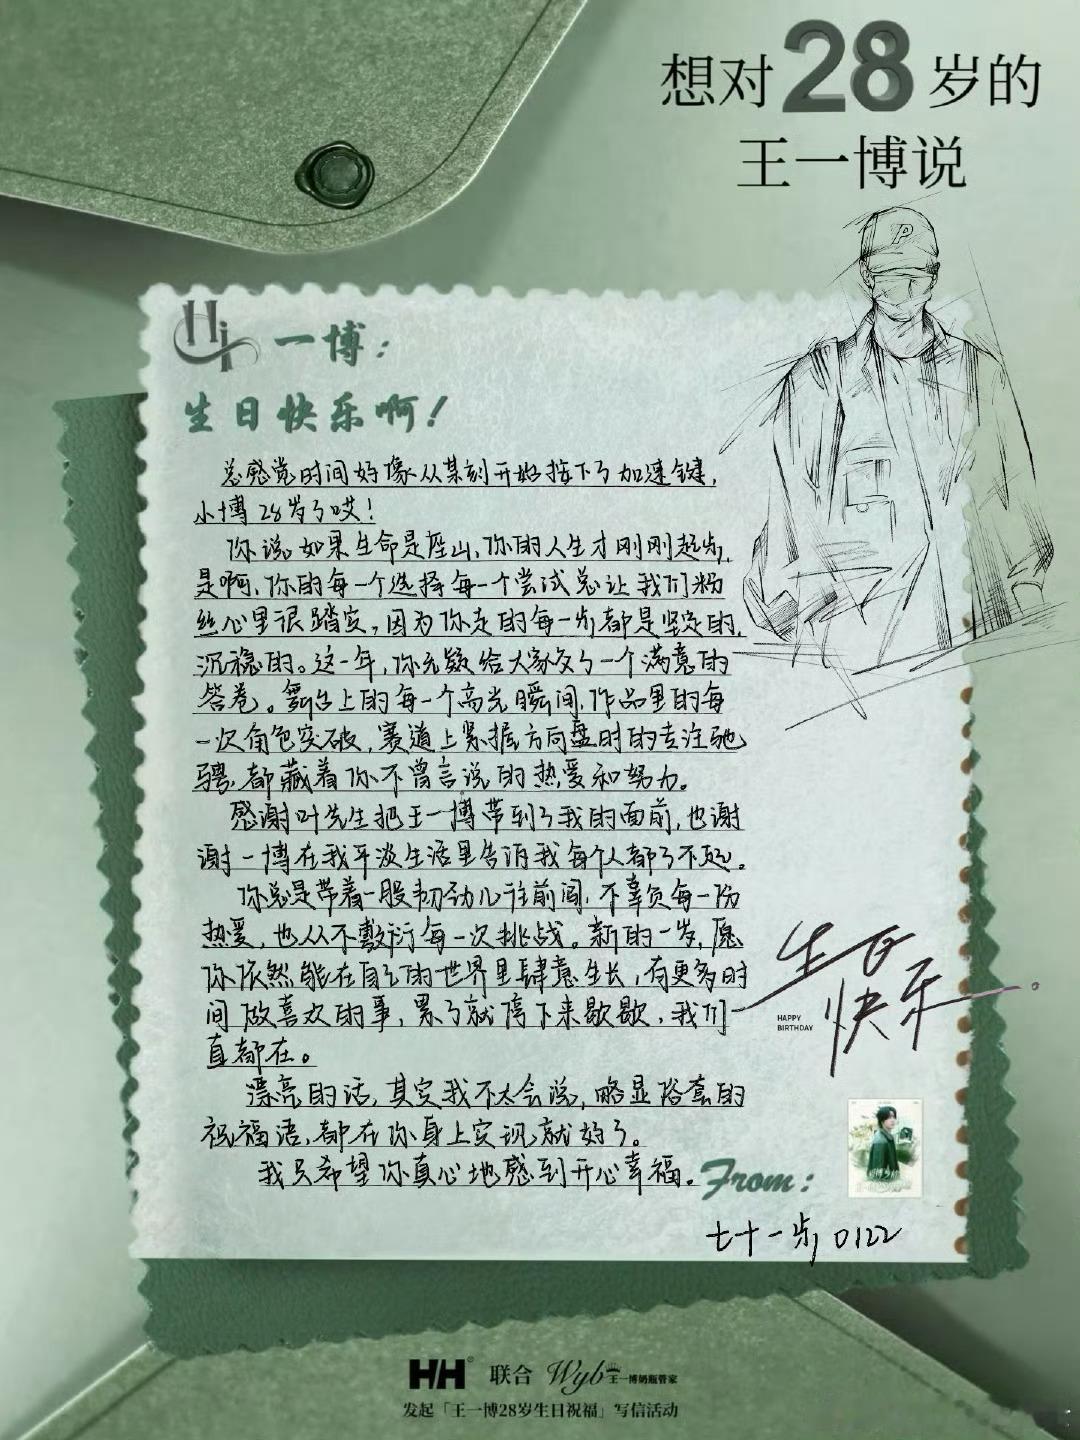 想对28岁的
王一博说
P
Hi 一博：
生日快乐啊！
总感觉时间好像从某刻开始按下了加速键，
小博28岁了哎！
你说如果生命是座山，你的人生才刚刚起步，
是啊，你的每一个选择每一个尝试总让我们粉
丝心里很踏实，因为你走的每一步都是坚定的，
沉稳的。这一年，你无疑给大家交了一个满意的
答卷。舞台上的每一个高光瞬间，作品里的每
一次角色突破，赛道上紧握方向盘时的专注驰
骋，都藏着你不曾言说的热爱和努力。
感谢叶先生把王一博带到了我的面前，也谢
谢一博在我平淡生活里告诉我每个人都了不起。
你总是带着一股韧劲儿往前闯，不辜负每一份
热爱，也从不敷衍每一次挑战。新的一岁，愿
你依然能在自己的世界里肆意生长，有更多时
间做喜欢的事，累了就停下来歇歇，我们一
直都在。
漂亮的话，其实我不太会说，略显俗套的
祝福语，都在你身上实现就好了。
我只希望你真心地感到开心幸福。
生日
快乐
HAPPY
BIRTHDAY
From：
七十一步 0122
HH 联合 Wyb 王一博奶瓶管家
发起「王一博28岁生日祝福」写信活动